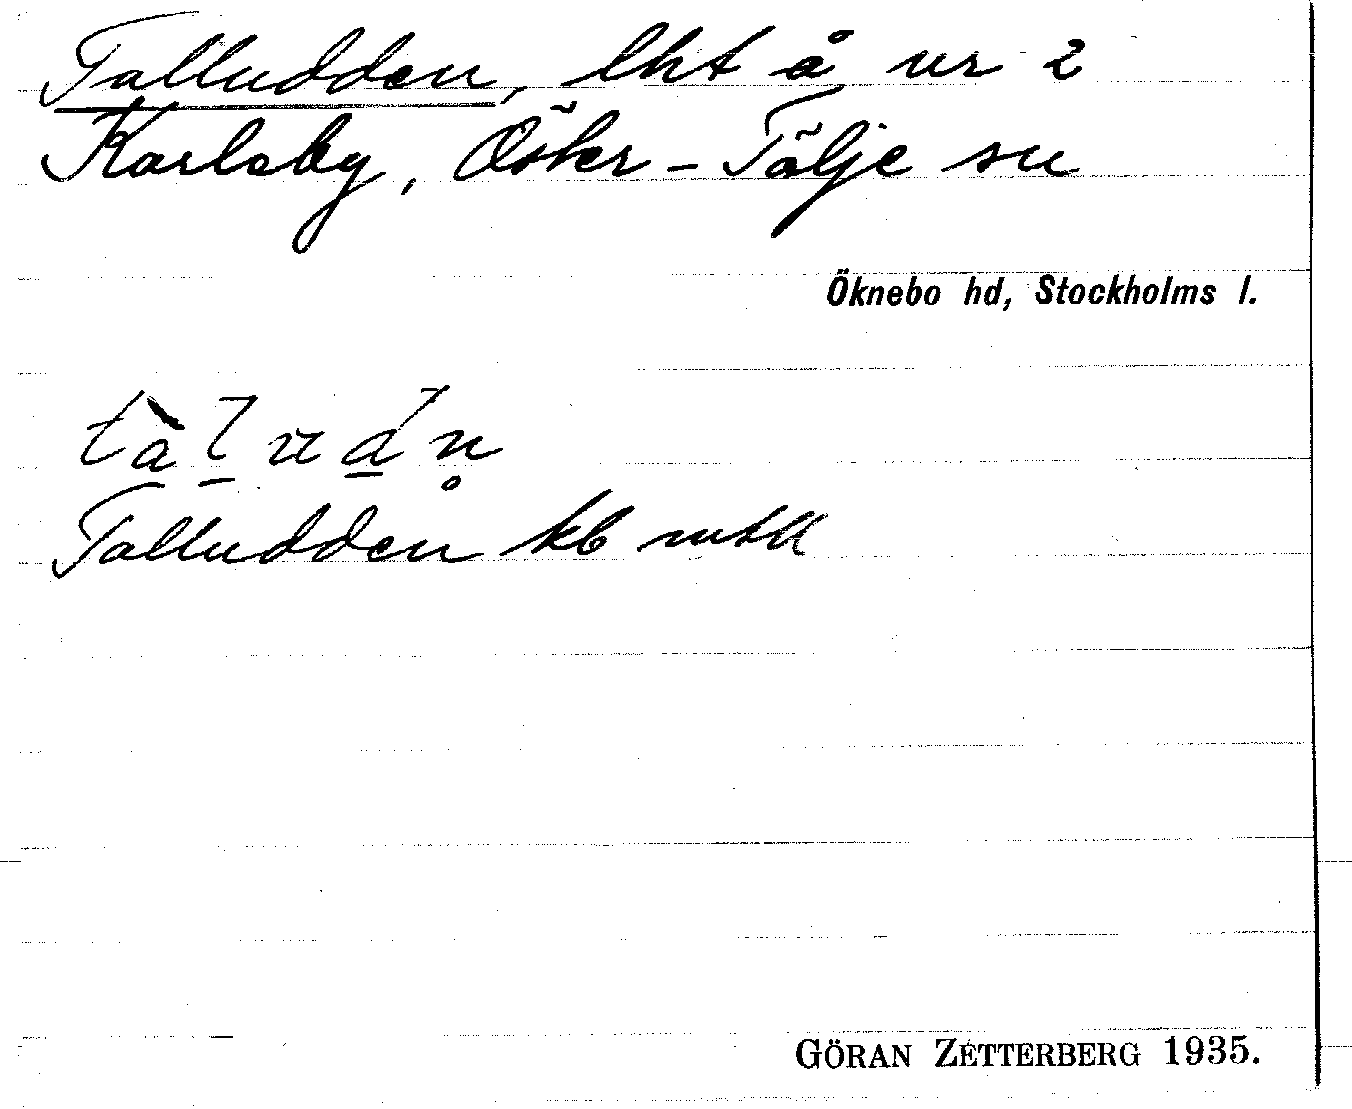 Talludden, lht å nr 2
Karlsby, Öster-Tälje sn
Öknebo hd, Stockholms l.
tàl̠ud̠n̥
Talludden kb mtll
GÖRAN ZETTERBERG 1935.